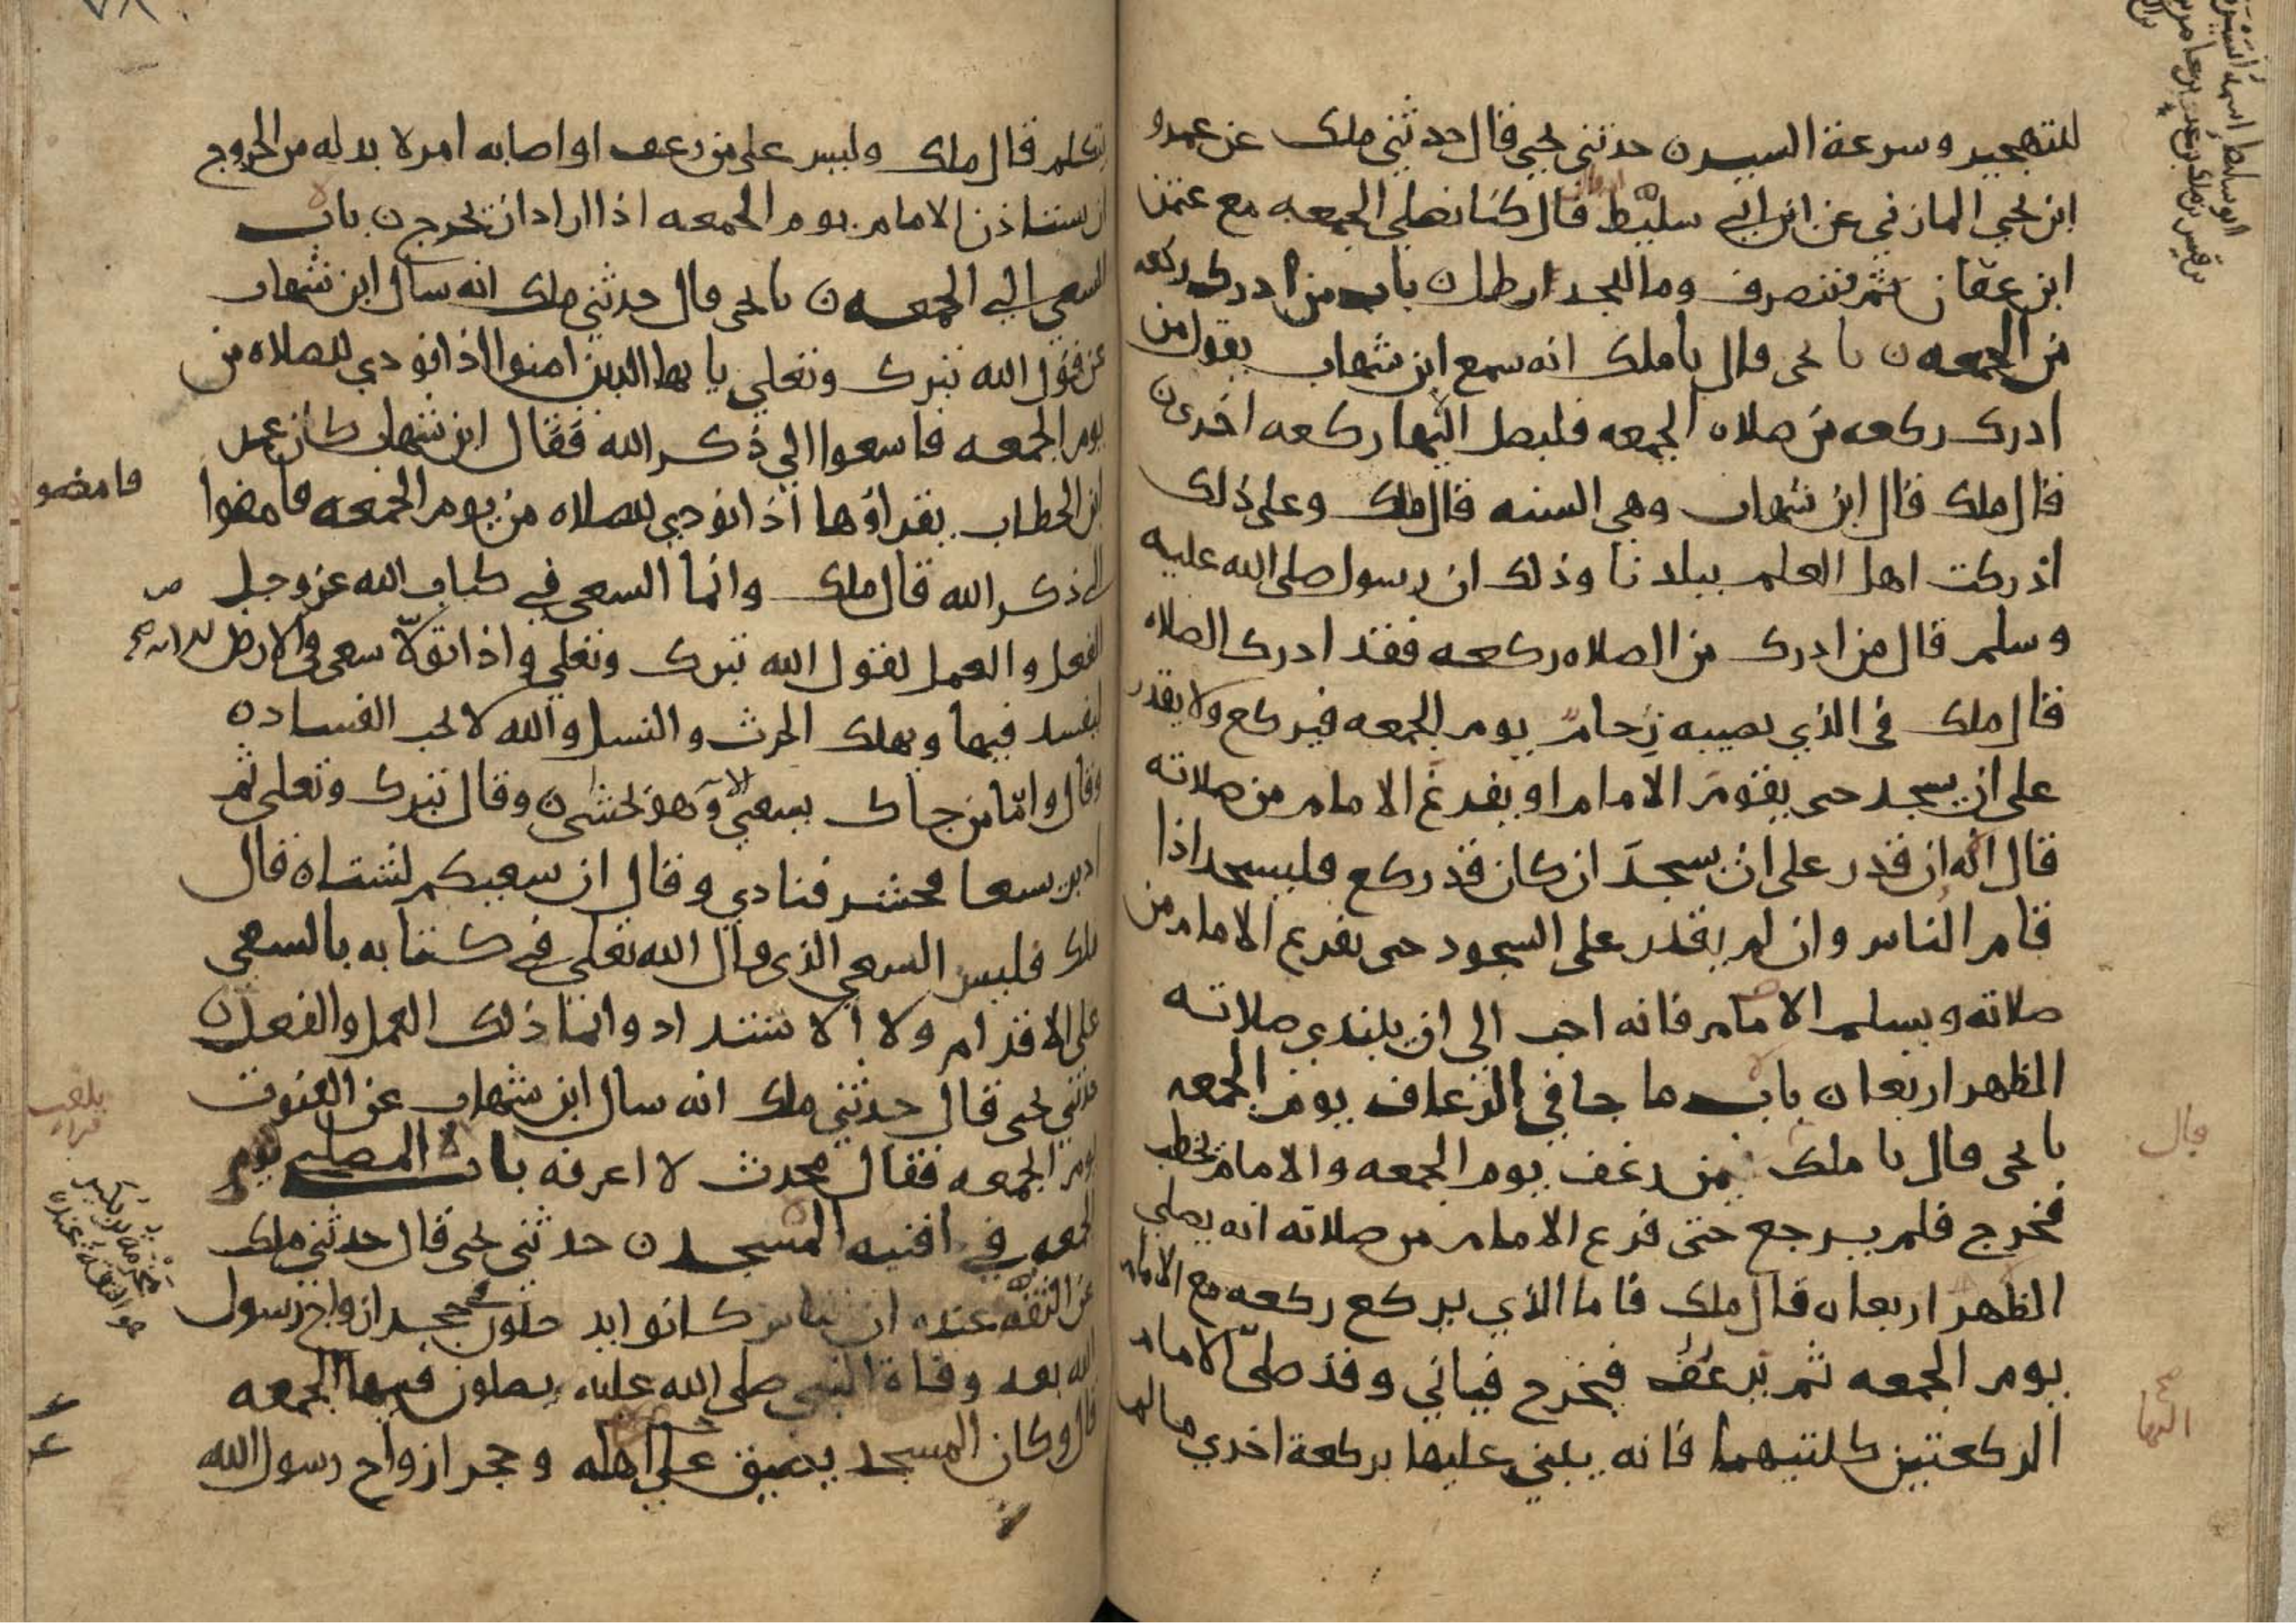 للتهجير وسرعة السير ن حدثني يحيى قال حدثني ملك عن عمرو
ابن يحيى المازني عن ابن ابي سليط قال كنا نصلي الجمعه مع عثمن
ابن عفان ثم ننصرف وما للجدار ظل ن باب من ادرك ركعه
من الجمعه ن نا يحيى قال نا ملك انه سمع ابن شهاب يقول من
ادرك ركعه من صلاه الجمعه فليصل اليها ركعه اخرى ن
قال ملك قال ابن شهاب وهي السنه قال ملك وعلى ذلك
ادركت اهل العلم ببلدنا وذلك ان رسول صلى الله عليه
وسلم قال من ادرك من الصلاه ركعه فقد ادرك الصلاه
قال ملك في الذي يصيبه زحام يوم الجمعه فيركع ولا يقدر
على ان يسجد حتى يقوم الامام او يفرغ الامام من صلاته
قال انه ان قدر على ان سجد ان كان قد ركع فليسجد اذا
قام الناس وان لم يقدر على السجود حتى يفرغ الامام من
صلاته ويسلم الامام فانه احب الي ان يبتدي صلاته
الظهر اربعا ن باب ما جا في الرعاف يوم الجمعه
نا يحيى قال نا ملك من رعف يوم الجمعه والامام يخطب
فخرج فلم يرجع حتى فرغ الامام من صلاته انه يصلي
الظهر اربعا ن قال ملك فاما الذي يركع ركعه مع الامام
يوم الجمعه ثم يرعف فيخرج فياتي وقد صلى الامام
الركعتين كلتيهما فانه يبني عليها بركعة اخرى ما لم
ابو سليط اسمه
قال
صح
يتكلم قال ملك وليس على من رعف او اصابه امر لا بد له من الخروج
ان يستاذن الامام يوم الجمعه اذا اراد ان يخرج ن باب
السعي الى الجمعه ن نا يحيى قال حدثني ملك انه سال ابن شهاب
عن قول الله تبرك وتعلى يا يها الذين امنوا اذا نودي للصلاه من
يوم الجمعه فاسعوا الي ذكر الله فقال ابن شهاب كان عمر
ابن الخطاب يقراوها اذا نودي للصلاه من يوم الجمعه فامضوا
الى ذكر الله قال ملك وانما السعي في كتاب الله عز وجل
الفعل والعمل لقول الله تبرك وتعلي واذا تولا سعى في الارض
ليفسد فيها ويهلك الحرث والنسل والله لا يحب الفساد ن
وقال واما من جاك يسعى وهو يخشى ن وقال تبرك وتعلى ثم
ادبر يسعا فحشر فنادي وقال ان سعيكم لشتا ن قال
ملك فليس السعي الذي قال الله تعلى في كتابه بالسعي
على الاقدام ولا الاشتداد وانما ذلك العمل والفعل ن
حدثني يحيى قال حدثني ملك انه سال ابن شهاب عن القنوت
يوم الجمعه فقال محدث لا اعرفه باب المصلي يوم
الجمعه في افنيه المسجد ن حدثني يحيى قال حدثني ملك
عن الثقه عنده ان ناس كانوا يدخلون حجر ازواج رسول
الله بعد وفاة النبي صلى الله عليه يصلون فيها الجمعه
قال وكان المسجد يضيق على اهله وحجر ازواج رسول الله
فامضو
هو الثقة عنده